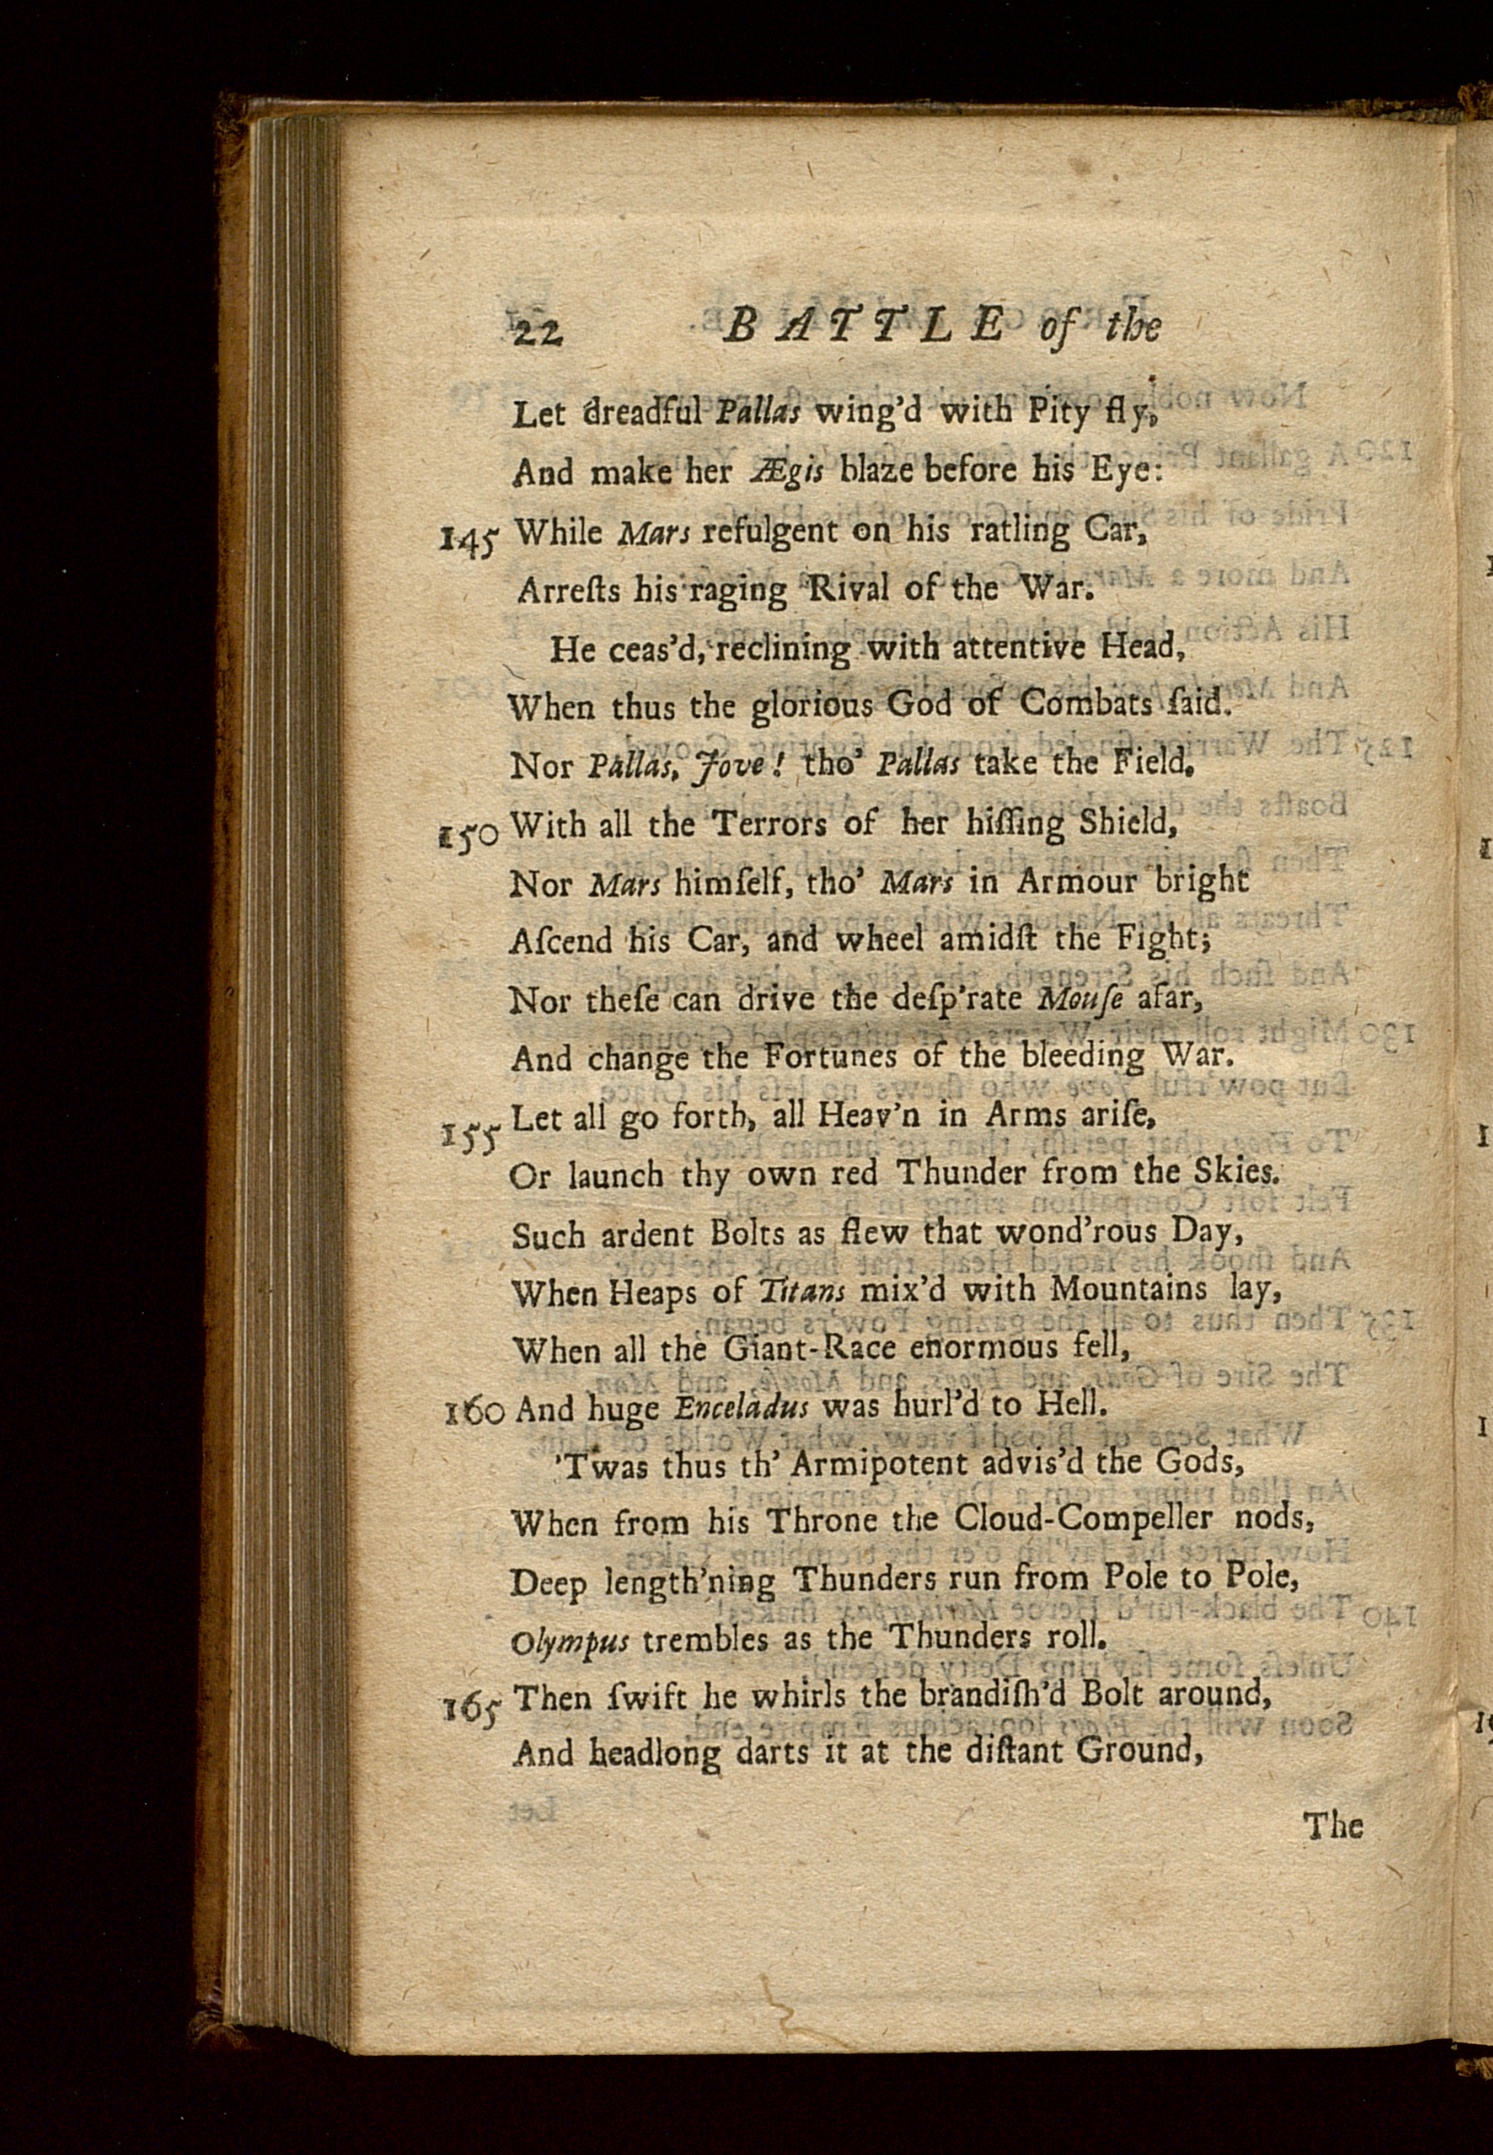 22 BATTLE of the
Let dreadful Pallas wing'd with Pity fly,
And make her Ægis blaze before his Eye:
145 While Mars refulgent on his ratling Car,
Arreſts his raging Rival of the War.
He ceas'd, reclining with attentive Head,
When thus the glorious God of Combats ſaid.
Nor Pallas, Jove! tho' Pallas take the Field,
150 With all the Terrors of her hiſſing Shield,
Nor Mars himſelf, tho' Mars in Armour bright
Aſcend his Car, and wheel amidſt the Fight;
Nor theſe can drive the deſp'rate Mouſe afar,
And change the Fortunes of the bleeding War.
155 Let all go forth, all Heav'n in Arms ariſe,
Or launch thy own red Thunder from the Skies.
Such ardent Bolts as flew that wond'rous Day,
When Heaps of Titans mix'd with Mountains lay,
When all the Giant-Race enormous fell,
160 And huge Enceladus was hurl'd to Hell.
'Twas thus th' Armipotent advis'd the Gods,
When from his Throne the Cloud-Compeller nods,
Deep length'ning Thunders run from Pole to Pole,
Olympus trembles as the Thunders roll.
165 Then ſwift he whirls the brandiſh'd Bolt around,
And headlong darts it at the diſtant Ground,
The